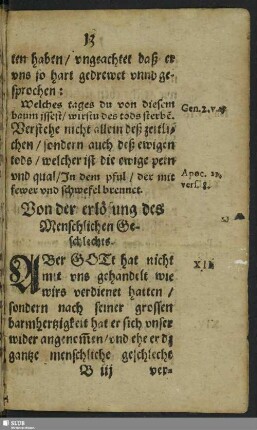 13
ten haben / vngeachtet daß er
vns so hart gedrewet vnnd ge-
sprochen:
Welches tages du von diesem
baum issest / wirstu des tods sterbē.
Gen. 2. v.
Verstehe nicht allein deß zeitli-
chen / sondern auch deß ewigen
tods / welcher ist die ewige pein
vnd qual / In dem pful / der mit
fewer vnd schwefel brennet.
Apoc. 21.
vers. 8.
Von der erlösung des
Menschlichen Ge-
schlechts.
ABer GOTt hat nicht
mit vns gehandelt wie
wirs verdienet hatten /
sondern nach seiner grossen
barmhertzigkeit hat er sich vnser
wider angenom̃en / vnd ehe er dz
gantze menschliche geschlecht
XII
B iij
ver-
SLUB